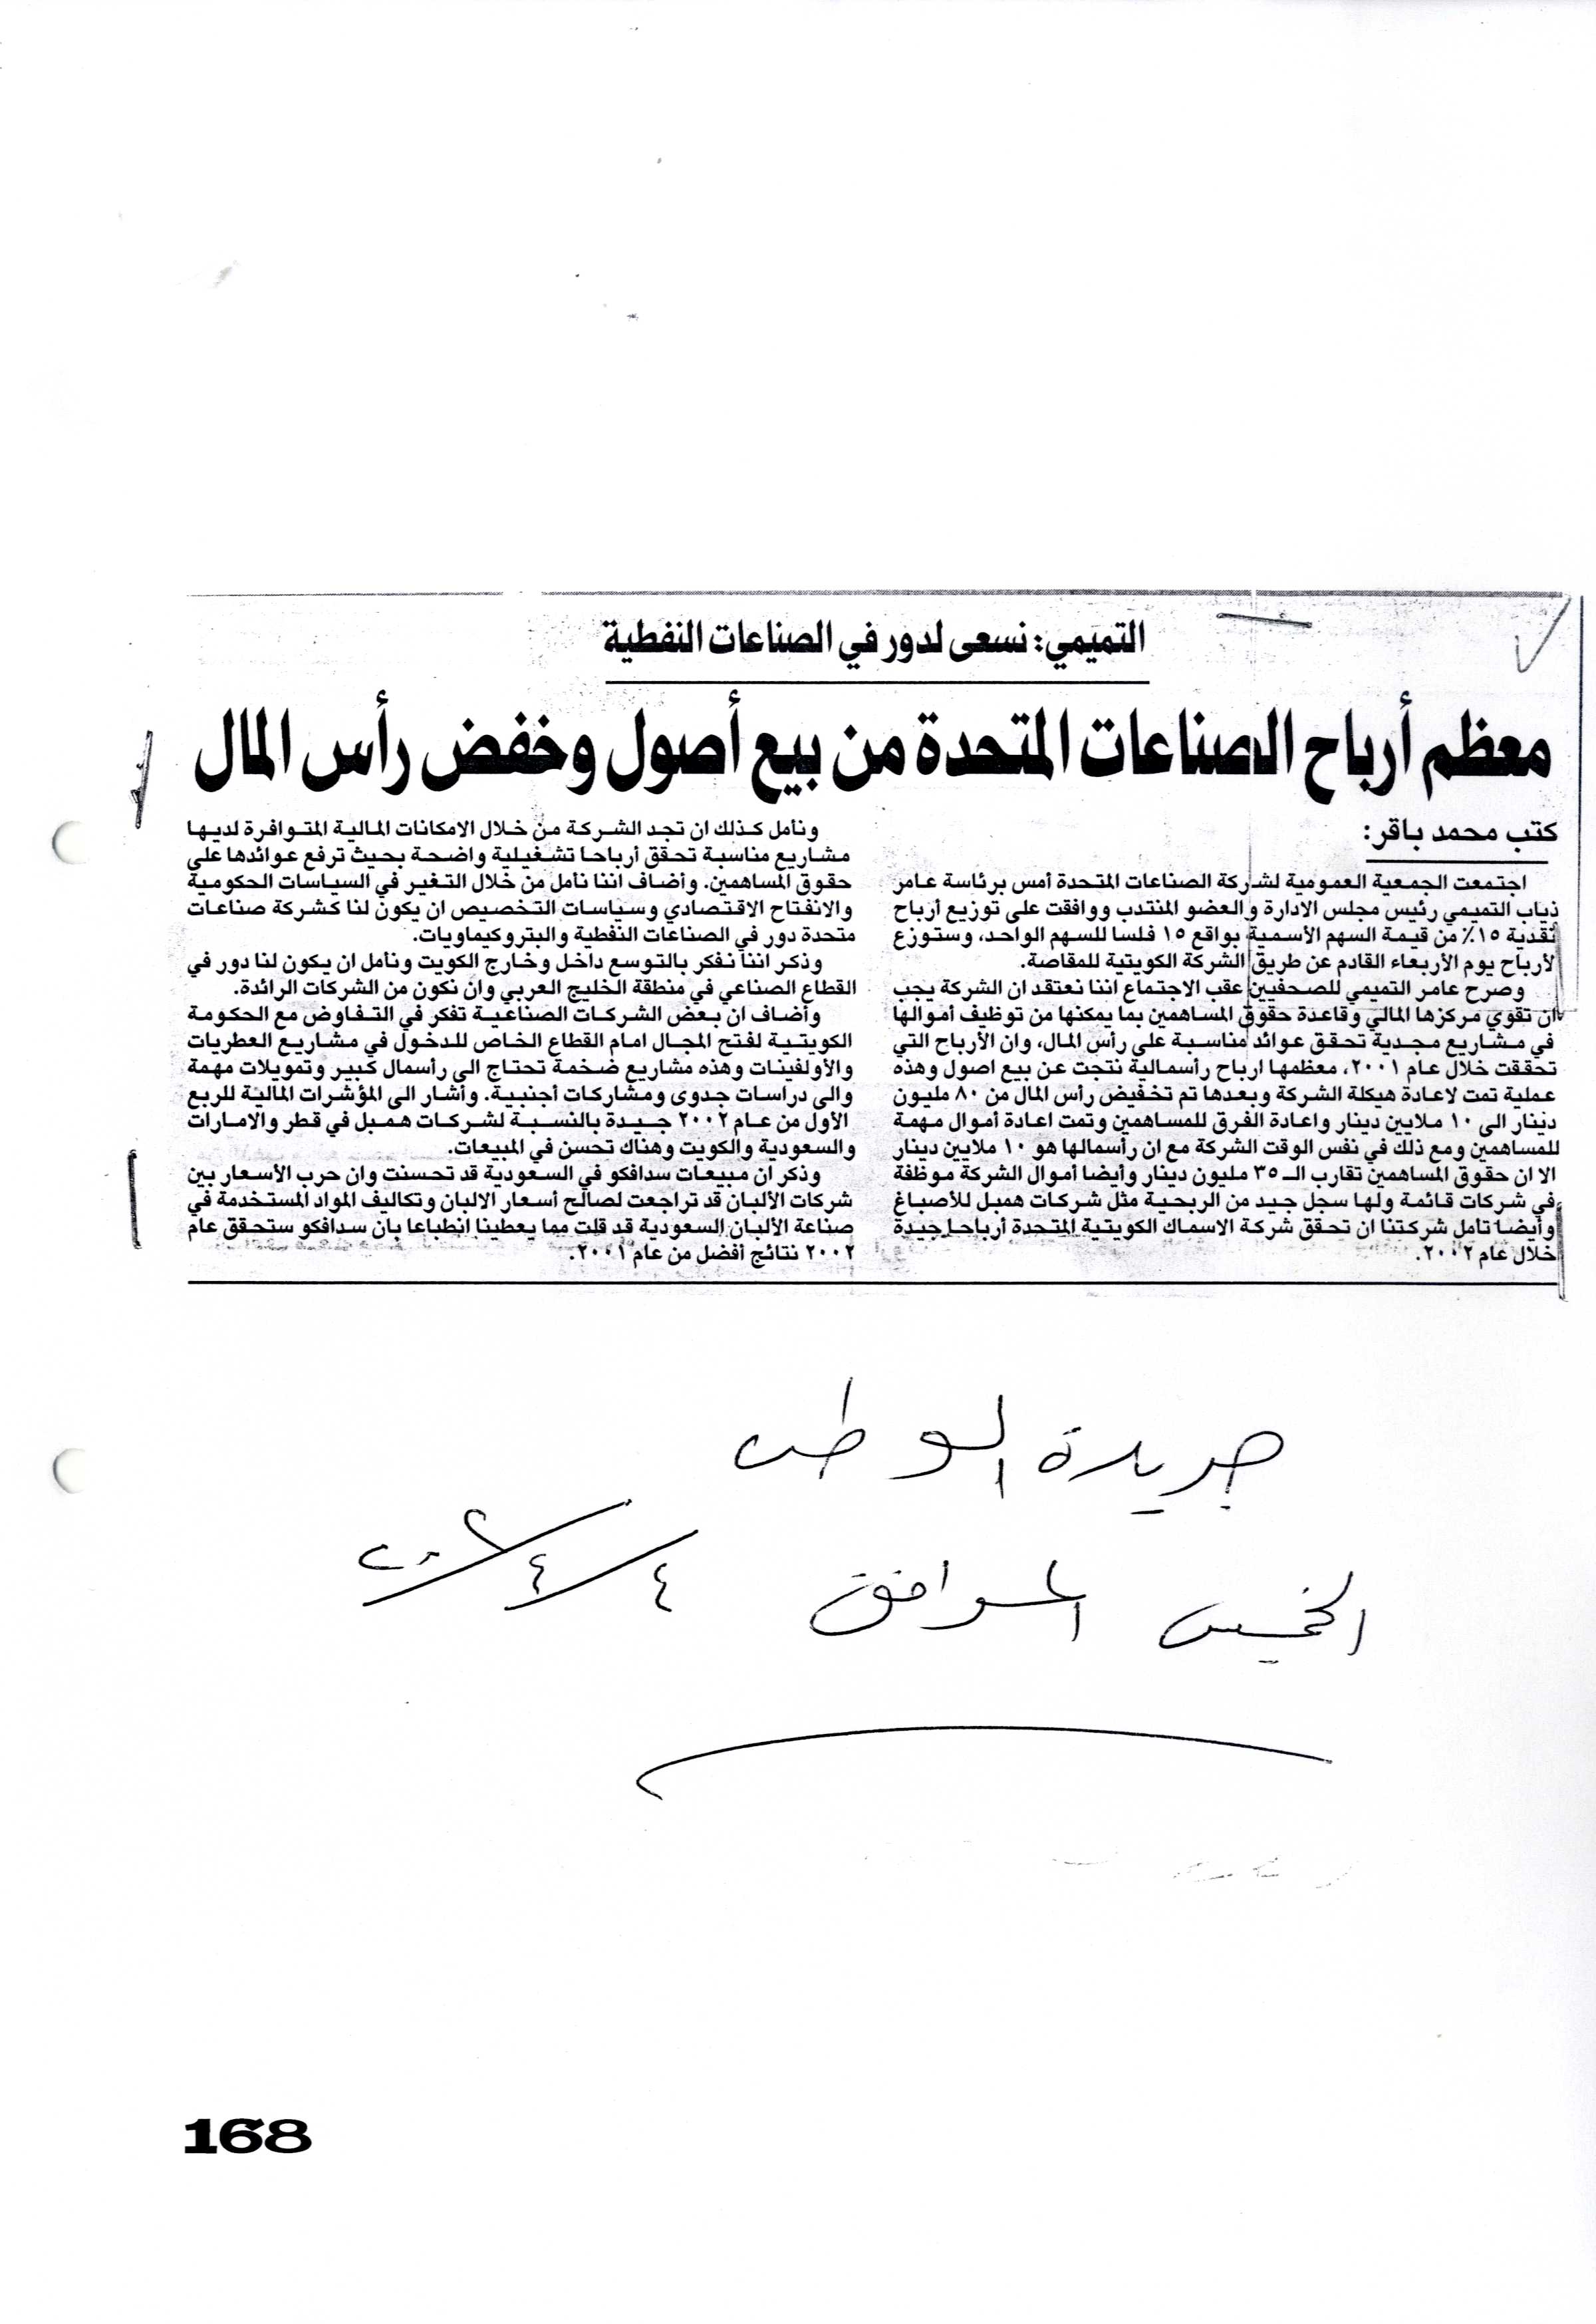 التميمي: نسعى لدور في الصناعات النفطية
معظم أرباح الصناعات المتحدة من بيع أصول وخفض رأس المال
كتب محمد باقر:
اجتمعت الجمعية العمومية لشركة الصناعات المتحدة أمس برئاسة عامر
ذياب التميمي رئيس مجلس الادارة والعضو المنتدب ووافقت على توزيع أرباح
نقدية ١٥٪ من قيمة السهم الأسمية بواقع ١٥ فلسا للسهم الواحد، وستوزع
لأرباح يوم الأربعاء القادم عن طريق الشركة الكويتية للمقاصة.
وصرح عامر التميمي للصحفيين عقب الاجتماع اننا نعتقد ان الشركة يجب
ان تقوي مركزها المالي وقاعدة حقوق المساهمين بما يمكنها من توظيف أموالها
في مشاريع مجدية تحقق عوائد مناسبة على رأس المال، وان الأرباح التي
تحققت خلال عام ٢٠٠١، معظمها ارباح رأسمالية نتجت عن بيع اصول وهذه
عملية تمت لاعادة هيكلة الشركة وبعدها تم تخفيض رأس المال من ٨٠ مليون
دينار الى ١٠ ملايين دينار واعادة الفرق للمساهمين وتمت اعادة أموال مهمة
للمساهمين ومع ذلك في نفس الوقت الشركة مع ان رأسمالها هو ١٠ ملايين دينار
الا ان حقوق المساهمين تقارب الـ ٣٥ مليون دينار وأيضا أموال الشركة موظفة
في شركات قائمة ولها سجل جيد من الربحية مثل شركات همبل للأصباغ
وأيضا تأمل شركتنا ان تحقق شركة الاسماك الكويتية المتحدة أرباحا جيدة
خلال عام ٢٠٠٢.
ونأمل كذلك ان تجد الشركة من خلال الامكانات المالية المتوافرة لديها
مشاريع مناسبة تحقق أرباحا تشغيلية واضحة بحيث ترفع عوائدها على
حقوق المساهمين. وأضاف اننا نأمل من خلال التغير في السياسات الحكومية
والانفتاح الاقتصادي وسياسات التخصيص ان يكون لنا كشركة صناعات
متحدة دور في الصناعات النفطية والبتروكيماويات.
وذكر اننا نفكر بالتوسع داخل وخارج الكويت ونأمل ان يكون لنا دور في
القطاع الصناعي في منطقة الخليج العربي وان نكون من الشركات الرائدة.
وأضاف ان بعض الشركات الصناعية تفكر في التفاوض مع الحكومة
الكويتية لفتح المجال امام القطاع الخاص للدخول في مشاريع العطريات
والأولفينات وهذه مشاريع ضخمة تحتاج الى رأسمال كبير وتمويلات مهمة
والى دراسات جدوى ومشاركات أجنبية. وأشار الى المؤشرات المالية للربع
الأول من عام ٢٠٠٢ جيدة بالنسبة لشركات همبل في قطر والامارات
والسعودية والكويت وهناك تحسن في المبيعات.
وذكر ان مبيعات سدافكو في السعودية قد تحسنت وان حرب الأسعار بين
شركات الألبان قد تراجعت لصالح أسعار الالبان وتكاليف المواد المستخدمة في
صناعة الألبان السعودية قد قلت مما يعطينا انطباعا بان سدافكو ستحقق عام
٢٠٠٢ نتائج أفضل من عام ٢٠٠١.
جريدة الوطن
الخميس الموافق ٤/٤/٢٠٠٢
168